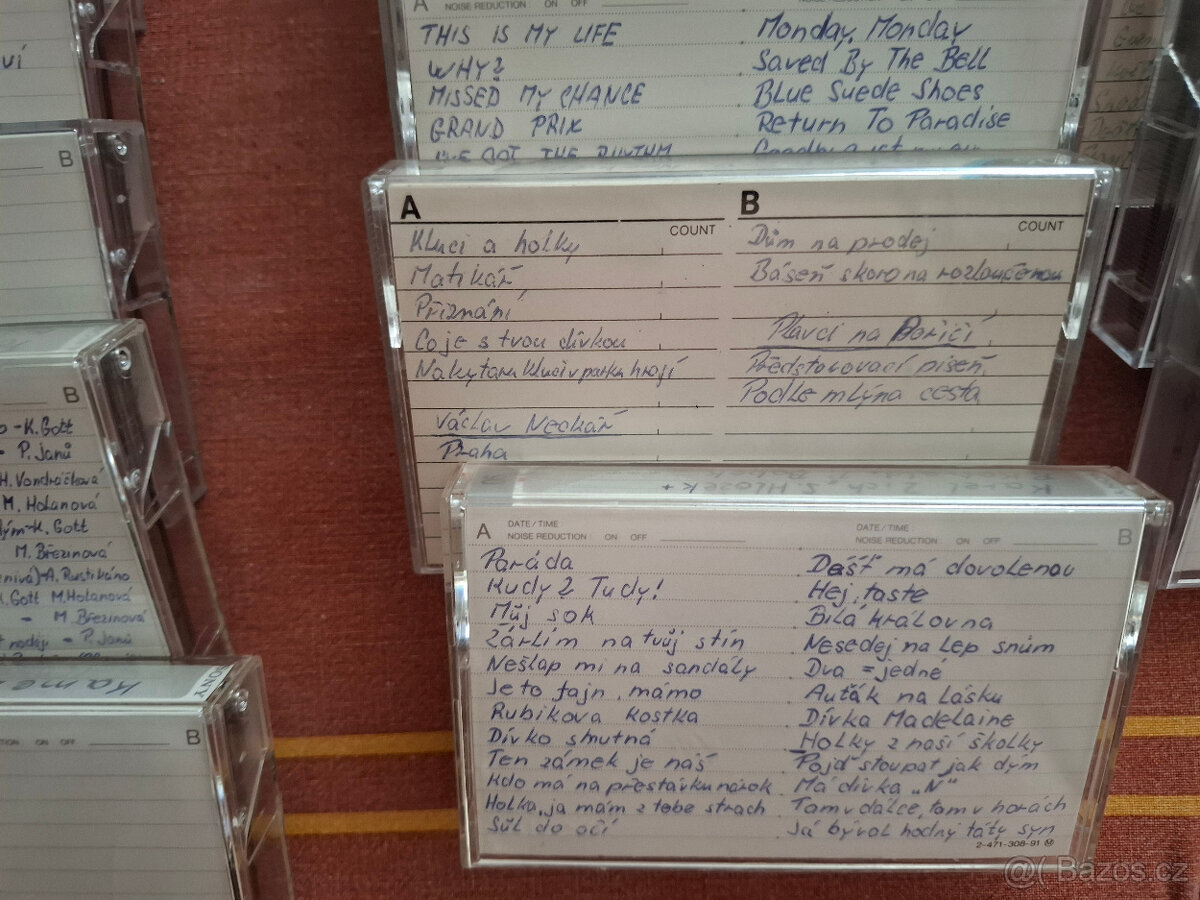 A NOISE REDUCTION ON OFF
THIS IS MY LIFE
WHY?
MISSED MY CHANCE
GRAND PRIX
I'VE GOT THE RHYTHM
Monday, Monday
Saved By The Bell
Blue Suede Shoes
Return To Paradise
A
COUNT
Kluci a holky
Matikář
Přiznání
Co je s tvou dívkou
Na kytaru kluci v parku hrají
Václav Neckář
Praha
B
COUNT
Dům na prodej
Báseň skoro na rozloučenou
Plavci na Poříčí
Představovací píseň
Podle mlýna cesta
A DATE/TIME
NOISE REDUCTION ON OFF
Paráda
Kudy z Tudy!
Můj sok
Žárlím na tvůj stín
Nešlap mi na sandály
Je to fajn, mámo
Rubikova kostka
Dívko smutná
Ten zámek je náš
Kdo má na přestávku nárok
Holka, ja mám z tebe strach
Sůl do očí
DATE/TIME
NOISE REDUCTION ON OFF B
Déšť má dovolenou
Hej, teste
Bílá královna
Nesedej na lep snům
Dva = jedné
Auťák na lásku
Dívka Madelaine
Holky z naší školky
Pojď stoupat jak dým
Má dívka „N"
Tam v dálce, tam v horách
Já býval hodný táty syn
2-471-308-91
B
B
- K. Gott
- P. Janů
H. Vondráčková
M. Holanová
dým - K. Gott
M. Březinová
K. Gott M. Holanová
- M. Březinová
- P. Janů
SONY
ON OFF B
@( Bazos.cz